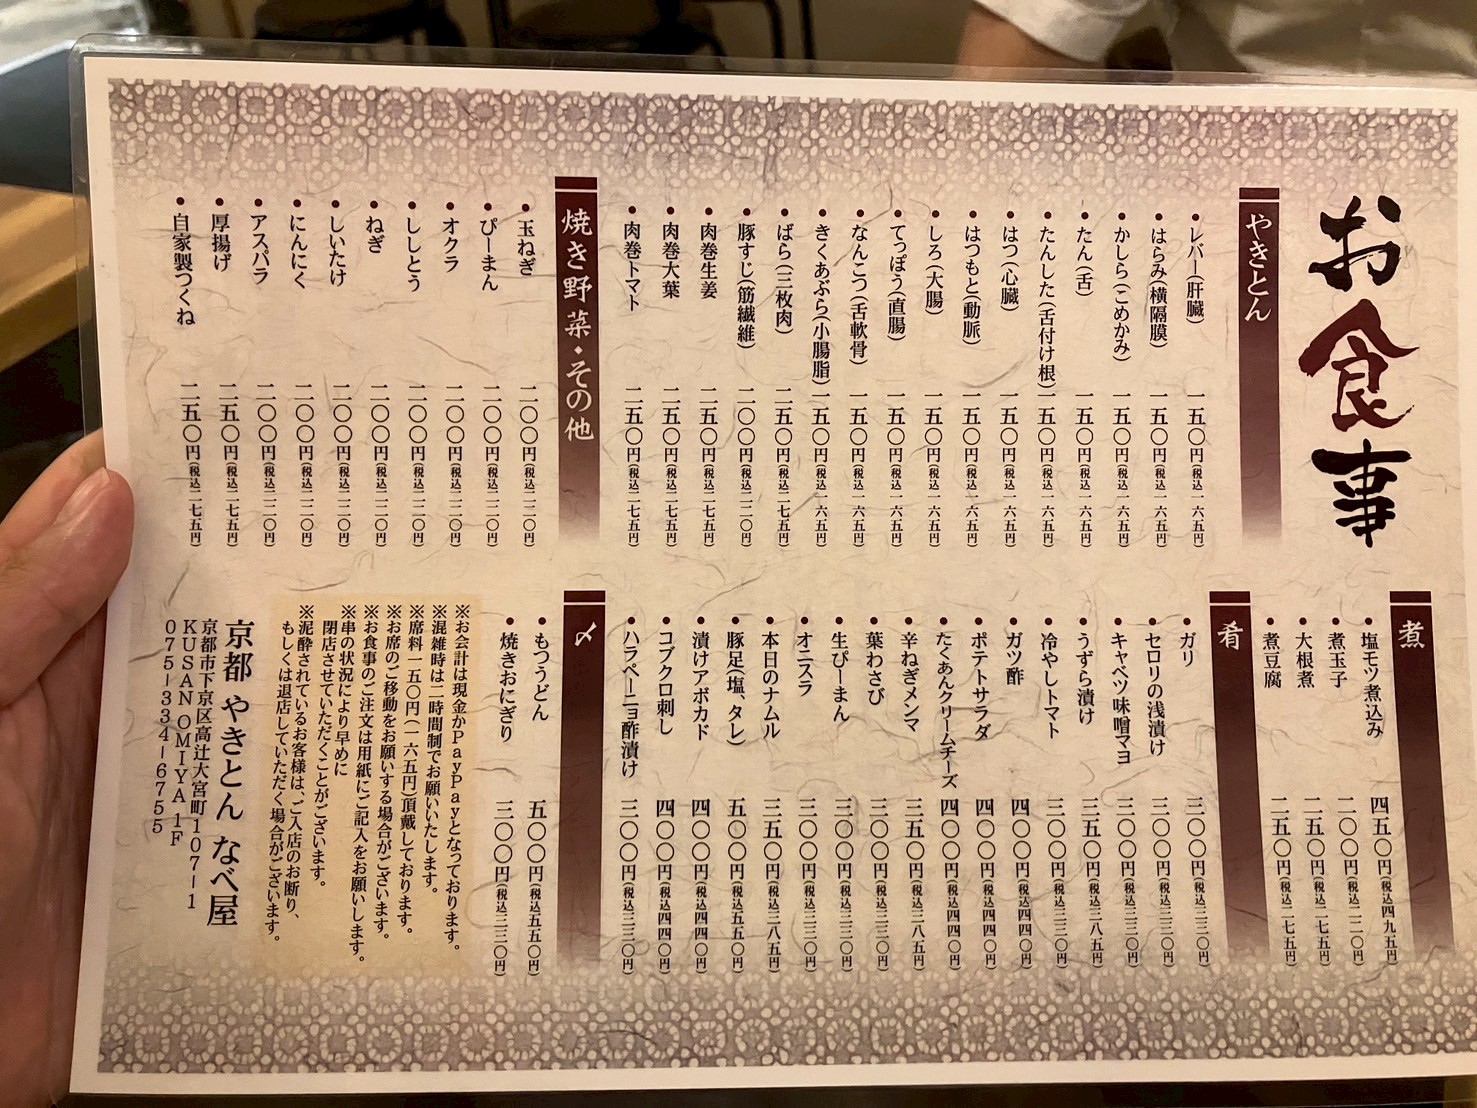 お食事
やきとん
・レバー(肝臓) 一五〇円(税込一六五円)
・はらみ(横隔膜) 一五〇円(税込一六五円)
・かしら(こめかみ) 一五〇円(税込一六五円)
・たん(舌) 一五〇円(税込一六五円)
・たんした(舌付け根) 一五〇円(税込一六五円)
・はつ(心臓) 一五〇円(税込一六五円)
・はつもと(動脈) 一五〇円(税込一六五円)
・しろ(大腸) 一五〇円(税込一六五円)
・てっぽう(直腸) 一五〇円(税込一六五円)
・なんこつ(舌軟骨) 一五〇円(税込一六五円)
・きくあぶら(小腸脂) 一五〇円(税込一六五円)
・ばら(三枚肉) 二五〇円(税込二七五円)
・豚すじ(筋繊維) 二〇〇円(税込二二〇円)
・肉巻生姜 二五〇円(税込二七五円)
・肉巻大葉 二五〇円(税込二七五円)
・肉巻トマト 二五〇円(税込二七五円)
焼き野菜・その他
・玉ねぎ 二〇〇円(税込二二〇円)
・ぴーまん 二〇〇円(税込二二〇円)
・オクラ 二〇〇円(税込二二〇円)
・ししとう 二〇〇円(税込二二〇円)
・ねぎ 二〇〇円(税込二二〇円)
・しいたけ 二〇〇円(税込二二〇円)
・にんにく 二〇〇円(税込二二〇円)
・アスパラ 二〇〇円(税込二二〇円)
・厚揚げ 二五〇円(税込二七五円)
・自家製つくね 二五〇円(税込二七五円)
煮
・塩モツ煮込み 四五〇円(税込四九五円)
・煮玉子 二〇〇円(税込二二〇円)
・大根煮 二五〇円(税込二七五円)
・煮豆腐 二五〇円(税込二七五円)
肴
・ガリ 三〇〇円(税込三三〇円)
・セロリの浅漬け 三〇〇円(税込三三〇円)
・キャベツ味噌マヨ 三〇〇円(税込三三〇円)
・うずら漬け 三五〇円(税込三八五円)
・冷やしトマト 三〇〇円(税込三三〇円)
・ガツ酢 四〇〇円(税込四四〇円)
・ポテトサラダ 四〇〇円(税込四四〇円)
・たくあんクリームチーズ 四〇〇円(税込四四〇円)
・辛ねぎメンマ 三五〇円(税込三八五円)
・葉わさび 三〇〇円(税込三三〇円)
・生ぴーまん 三〇〇円(税込三三〇円)
・オニスラ 三〇〇円(税込三三〇円)
・本日のナムル 三五〇円(税込三八五円)
・豚足(塩、タレ) 五〇〇円(税込五五〇円)
・漬けアボカド 四〇〇円(税込四四〇円)
・コブクロ刺し 四〇〇円(税込四四〇円)
・ハラペーニョ酢漬け 三〇〇円(税込三三〇円)
〆
・もつうどん 五〇〇円(税込五五〇円)
・焼きおにぎり 三〇〇円(税込三三〇円)
※お会計は現金かPayPayとなっております。
※混雑時は二時間制でお願いいたします。
※席料一五〇円(一六五円)頂戴しております。
※お席のご移動をお願いする場合がございます。
※お食事のご注文は用紙にご記入をお願いします。
※串の状況により早めに
閉店させていただくことがございます。
※泥酔されているお客様は、ご入店のお断り、
もしくは退店していただく場合がございます。
京都 やきとん なべ屋
京都市下京区高辻大宮町107-1
KUSAN OMIYA 1F
075-334-6755